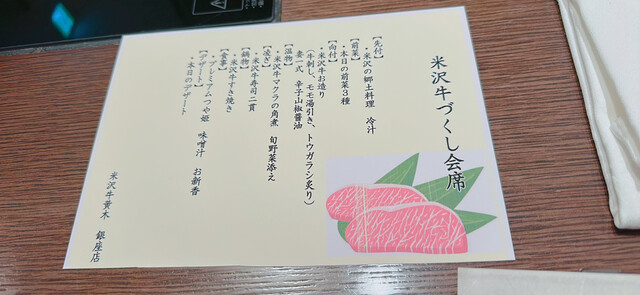 米沢牛づくし会席
【先付】
・米沢の郷土料理 冷汁
【前菜】
・本日の前菜3種
【向付】
・米沢牛お造り
(牛刺し、モモ湯引き、トウガラシ炙り)
妻一式 辛子山椒醤油
【温物】
・米沢牛マクラの角煮 旬野菜添え
【凌ぎ】
・米沢牛寿司二貫
【鍋物】
・米沢牛すき焼き
【食事】
・プレミアムつや姫 味噌汁 お新香
【デザート】
・本日のデザート
米沢牛黄木 銀座店